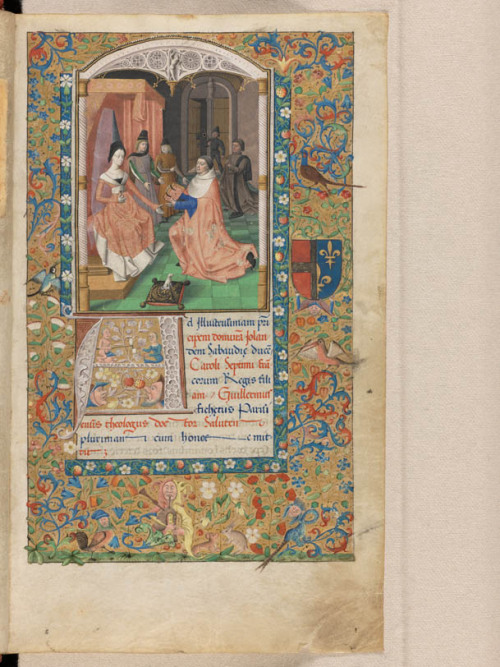 Ad Illustrissimam prī
cipem dominā Jolan
dem Sabaudie ducē
Caroli Septimi frā
corum Regis fili
am Guillermus
fichetus Parisi
ensis theologus doc tor Salutē
plurimam cum honore mit
tit